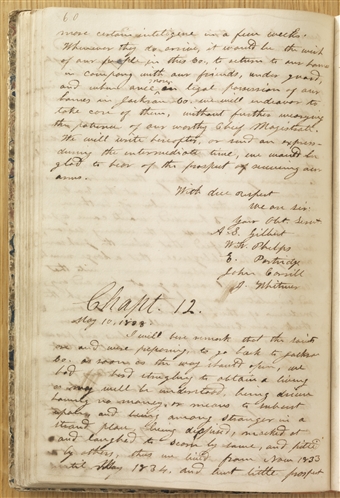 60
more certain inteligence in a few weeks.
Whenever they do arrive, it would be the wish
of our people in this Co. to return to our homes
in company with our friends, under guard,
and when once in legal possession of our
homes in Jackson Co. we will endeavor to
take care of them, without further wearying
the patience of our worthy Chief Magistrate.
We will write hereafter, or send an express
during the intermediate time, we would be
glad to hear of the prospect of recovering our
arms.
With due respect
We are sir
Your Obt. Servts
A. S. Gilbert
W. W. Phelps
E. Partridge
John Corrill
D. Whitmer
Chapt. 12.
May 10, 1838
I will here remark that the saints
on and were preparing, to go back to Jackson
Co. as soon as the way should open, we
had hard strugling to obtain a living
as may well be understood, being driven
having no money, or means to subsist
upon and being among stranger in a
strand place, being despised, mocked at
and laughed to scorn by some, and pitied
by others, thus we lived from Nov 1833
until May 1834. and but little prospect